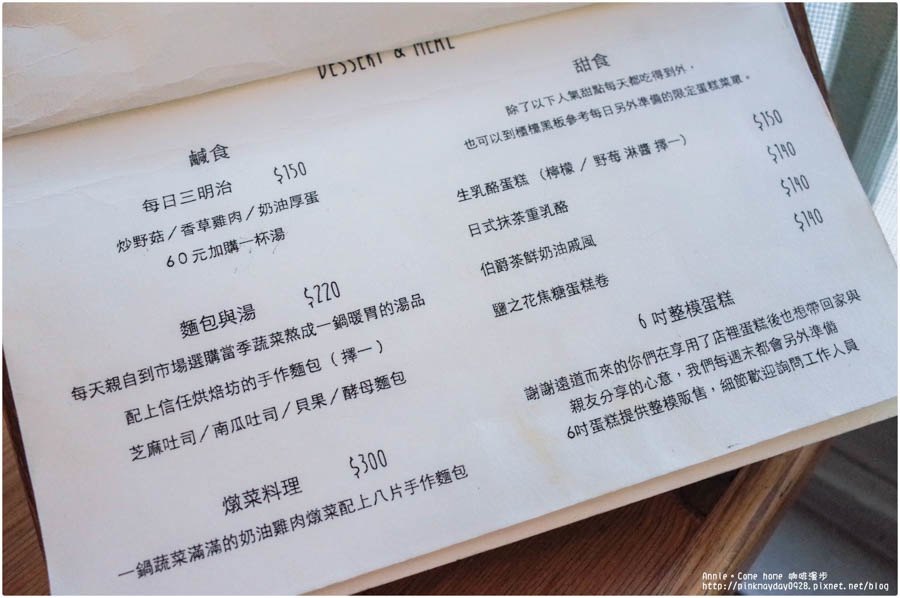 DESSERT & MEAL
鹹食
每日三明治 $150
炒野菇／香草雞肉／奶油厚蛋
60元加購一杯湯
麵包與湯 $220
每天親自到市場選購當季蔬菜熬成一鍋暖胃的湯品
配上信任烘焙坊的手作麵包（擇一）
芝麻吐司／南瓜吐司／貝果／酵母麵包
燉菜料理 $300
一鍋蔬菜滿滿的奶油雞肉燉菜配上八片手作麵包
甜食
除了以下人氣甜點每天都吃得到外，
也可以到櫃檯黑板參考每日另外準備的限定蛋糕菜單。
生乳酪蛋糕（檸檬 / 野莓 淋醬 擇一） $150
日式抹茶重乳酪 $140
伯爵茶鮮奶油戚風 $140
鹽之花焦糖蛋糕卷 $140
6吋整模蛋糕
謝謝遠道而來的你們在享用了店裡蛋糕後也想帶回家與
親友分享的心意，我們每週末都會另外準備
6吋蛋糕提供整模販售，細節歡迎詢問工作人員
Annie。Come home 咖啡漫步
http://pinkmayday0928.pixnet.net/blog